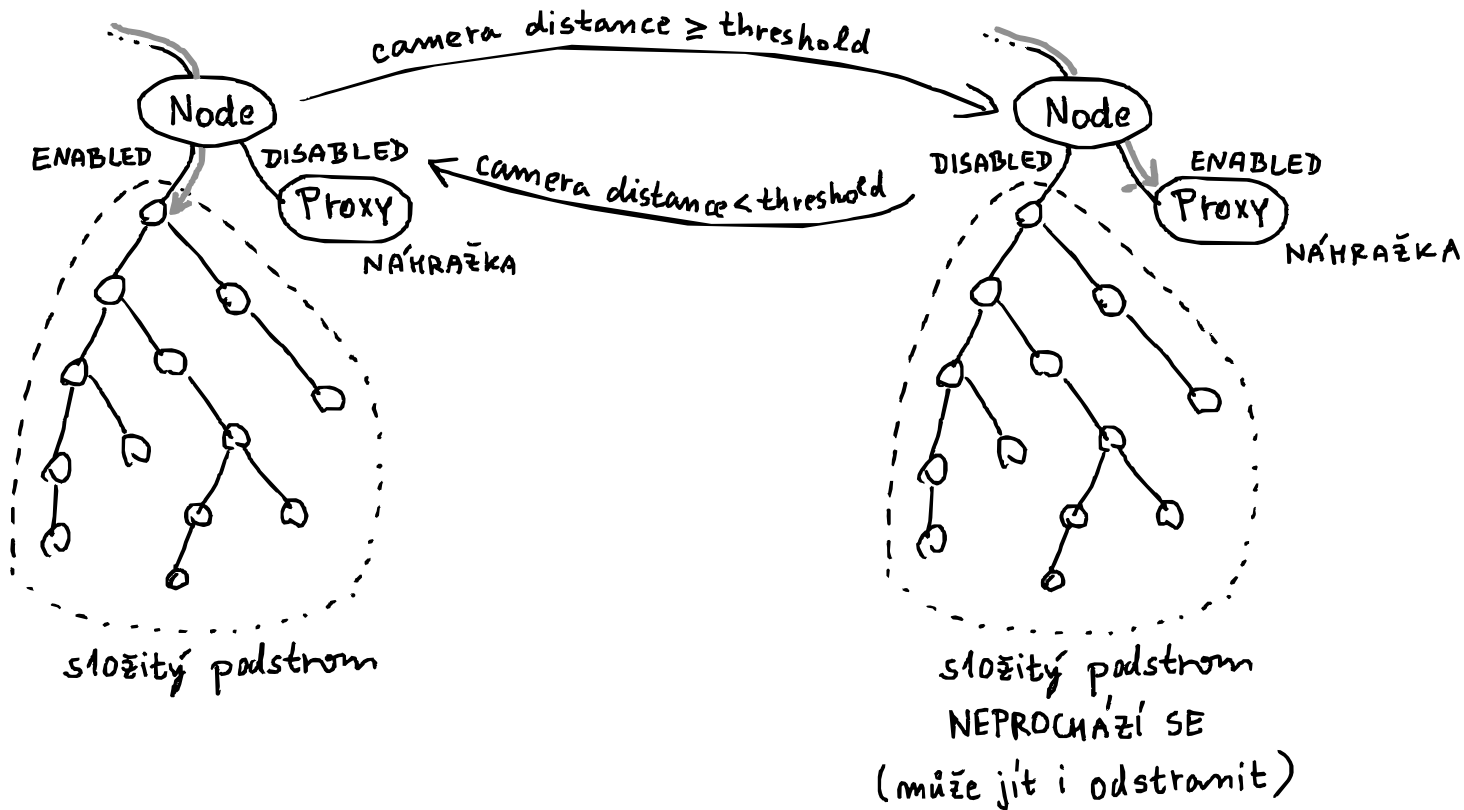 camera distance ≥ threshold
Node
ENABLED
DISABLED
Proxy
NÁHRAŽKA
camera distance < threshold
Node
DISABLED
ENABLED
Proxy
NÁHRAŽKA
složitý podstrom
složitý podstrom
NEPROCHÁZÍ SE
(může jít i odstranit)